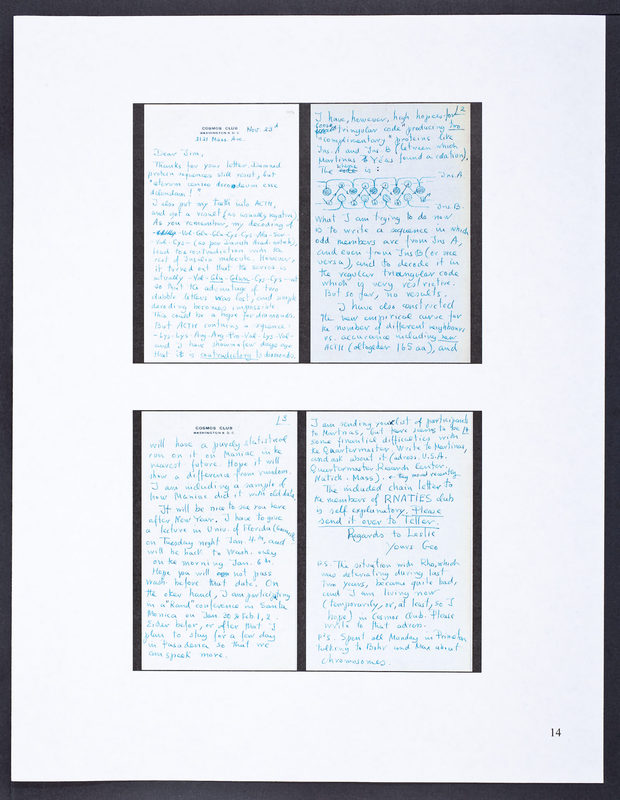 COSMOS CLUB
WASHINGTON 5, D. C.
Nov. 23d
2121 Mass. Ave.
Dear Jim,
Thanks for your letter. Diamond
protein sequences will resist, but
"
I also put my teeth into ACTH,
and got a result (as usually negative).
As you remember, my decoding of
-Val-Glu-Glu-Cys-Cys-Ala-Ser-
Val-Cys- (as per
lead to contradiction with the
rest of Insulin molecule. However,
it turned out that the series is
actually -Val-Glu-Glun-Cys-Cys-
so that the advantage of two
dubble letters was lost, and simple
decoding becomes impossible
This could be a hope for diamonds.
But ACTH contains a sequence:
-Lys-Lys-Arg-Arg-Pro-Val-Lys-Val-
and I have shown a few days ago
that it is contradictory to diamonds.
2
I have, however, high hopes for
"triangular code" producing two
"complimentary" proteins like
Ins. A and Ins B (between which
Martinas & Yčas found a relation).
The is:
Ins. A
Ins. B.
What I am trying to do now
is to write a sequence in which
odd members are from Ins A,
and even from Ins B (or vice
versa), and to decode it in
the regular triangular code
which is very restrictive.
But so far, no results.
I have also constructed
the new empirical curve for
the number of different neighbours
vs. accurance including new
ACTH (altogeder 165 aa), and
COSMOS CLUB
WASHINGTON 5, D. C.
3
will have a purely statistical
run on it on Maniac in the
nearest future. Hope it will
show a difference from random.
I am including a sample of
how Maniac did it with old data.
It will be nice to see you here
after New Year. I have to give
a lecture in Univ. of Florida
on Tuesday night Jan. 4th, and
will be back to Wash. only
on the morning Jan. 6th.
Hope you will not pass
Wash. before that date. On
the oker hand, I am participating
in a "Rand" conference in Santa
Monica on Jan 30 & Feb 1, 2.
Eider befor, or after that I
plan to stay for a few day
in Pasadena so that we
can speek more.
I am sending your list of participants
to Martinas, but there seems to be
4
some financial difficulties with
the Quartermaster. Write to Martinas,
and ask about it (adress. U.S.A.
Quartermaster Research Center.
Natick. Mass). ← They moved recently.
The included chain letter to
the members of RNATIES club
is self explanatory. Please
send it over to Teller.
Regards to Leslie
Yours Geo
P.S. The situation with Rho, which
was deteriating during last
two years, became quite bad,
and I am living now
(temporarily, or, at least, so I
hope) in Cosmos Club. Please
write to that adress.
P²S. Spent all Monday in Princeton
talking to Bohr and Max about
chromosomes.
14